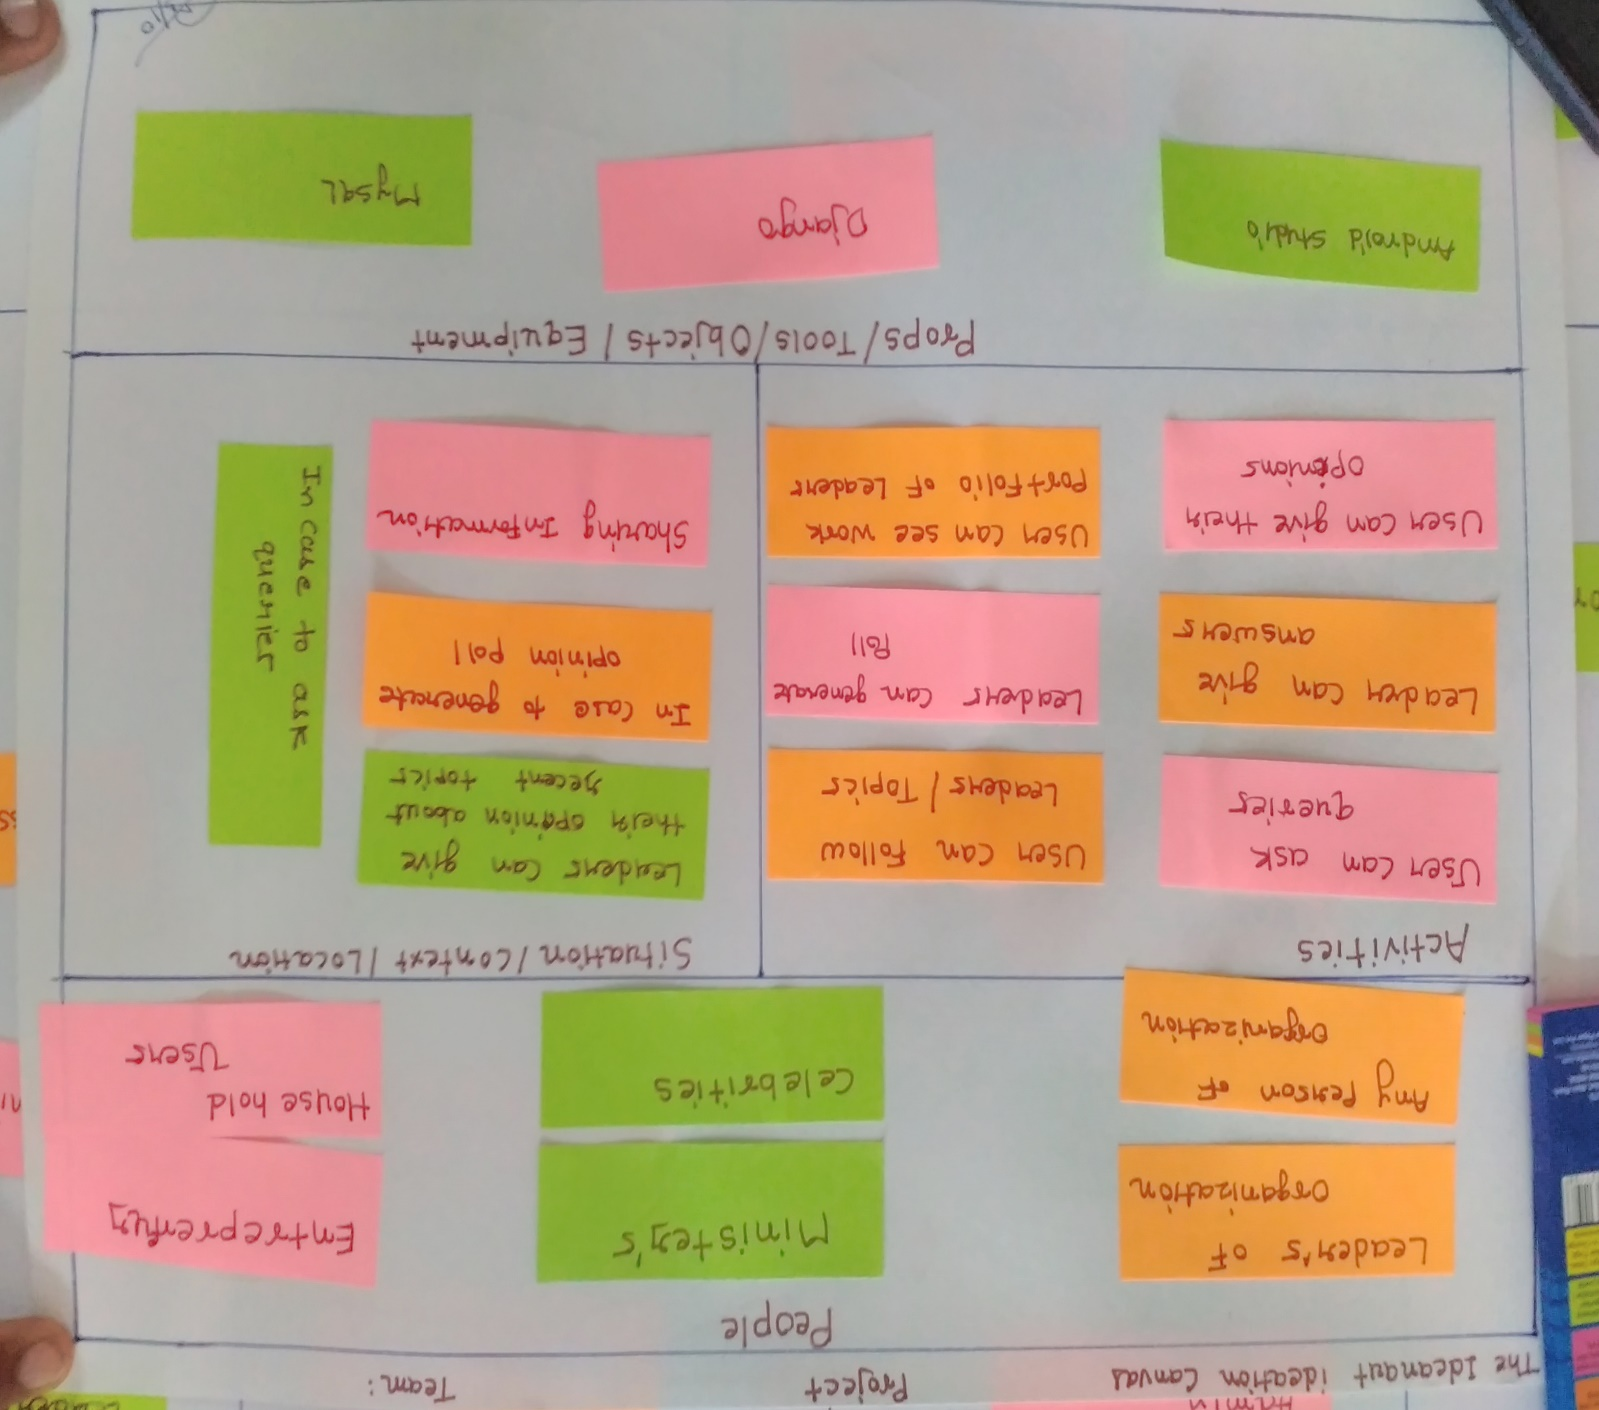 The Ideanaut ideation Canvas
Project
Team:
People
Leader's of
Organization
Any Person of
Organization
Minister's
Celebrities
House hold
Users
Activities
User can ask
queries
User can follow
Leaders / Topics
Leader can give
answers
Leaders can generate
Poll
User can give their
opinions
User can see work
Portfolio of Leaders
Situation / Context / Location
Leaders can give
their opinion about
recent topics
In case to generate
opinion poll
Sharing Information
In case to ask
queries
Props / Tools / Objects / Equipment
Android Studio
Django
MySQL